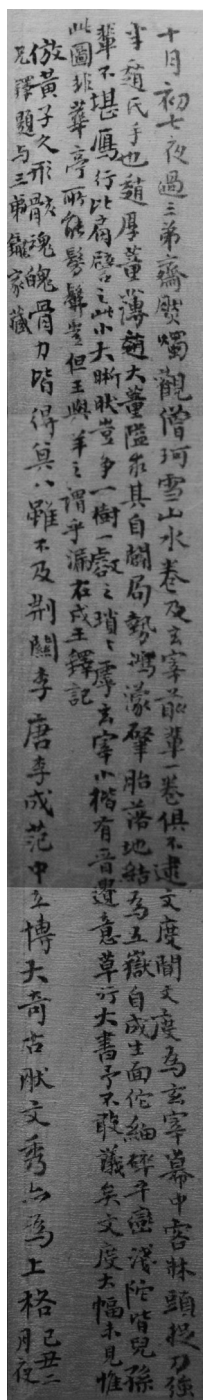 十月初七夜過三弟齋熨燭觀僧珂雪山水卷及玄宰前輩一卷俱不逮文度聞文度為玄宰幕中客牀頭捉刀強
半趙氏手也趙厚董薄趙大董隘求其自闢局勢鴻濛肇胎落地能為五嶽自成生面佗細碎平巒淺陀皆兒孫
輩不堪雁行此扇譬之此小大晰肰豈爭一樹一壑之瑣瑣虖玄宰小楷有晉遺意草行大書予不敢議矣文度大幅未見惟
此圖非華亭所能髣髴豈但玉與羊之謂乎漏右戌王鐸記
倣黃子久形骸魂魄骨力皆得具八雖不及荆關李唐李成范中立博大奇古肰文秀亦為上格己丑二月夜
兄鐸題与三弟鑨家藏